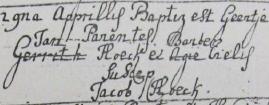 29na Aprillis Baptiz est Geertje
Jan Parentes Barber
Gerrith Roeck et Agie Gielis
Suscep
Jacob Roeck.